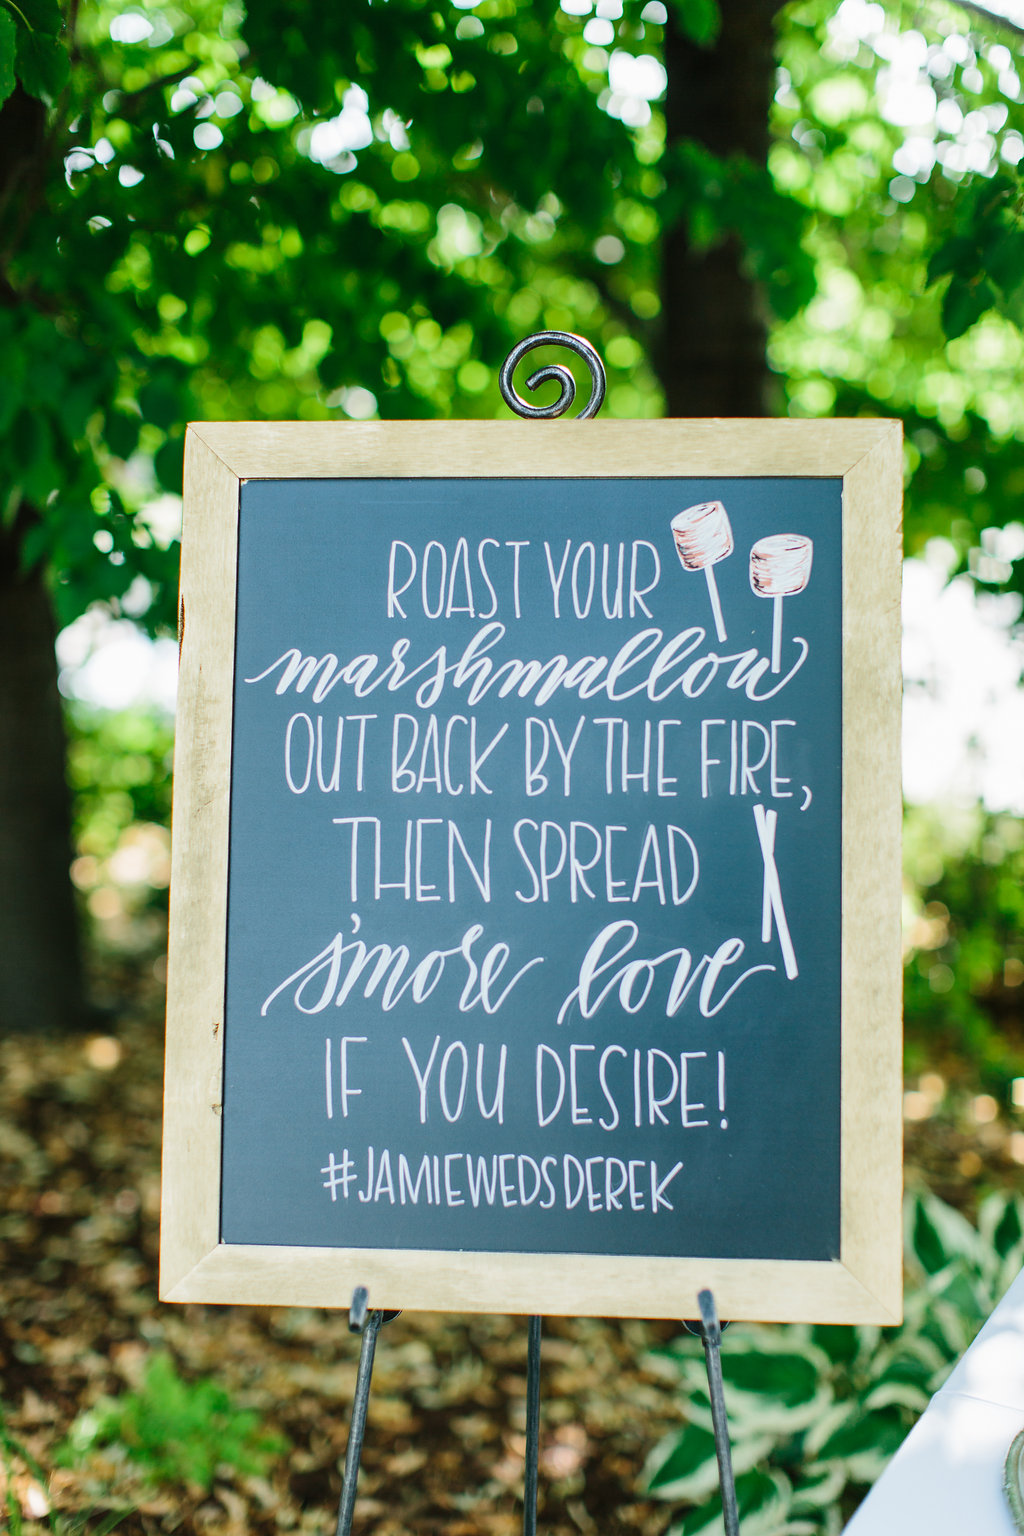 ROAST YOUR
marshmallow
OUT BACK BY THE FIRE,
THEN SPREAD
s'more love
IF YOU DESIRE!
#JAMIEWEDSDEREK